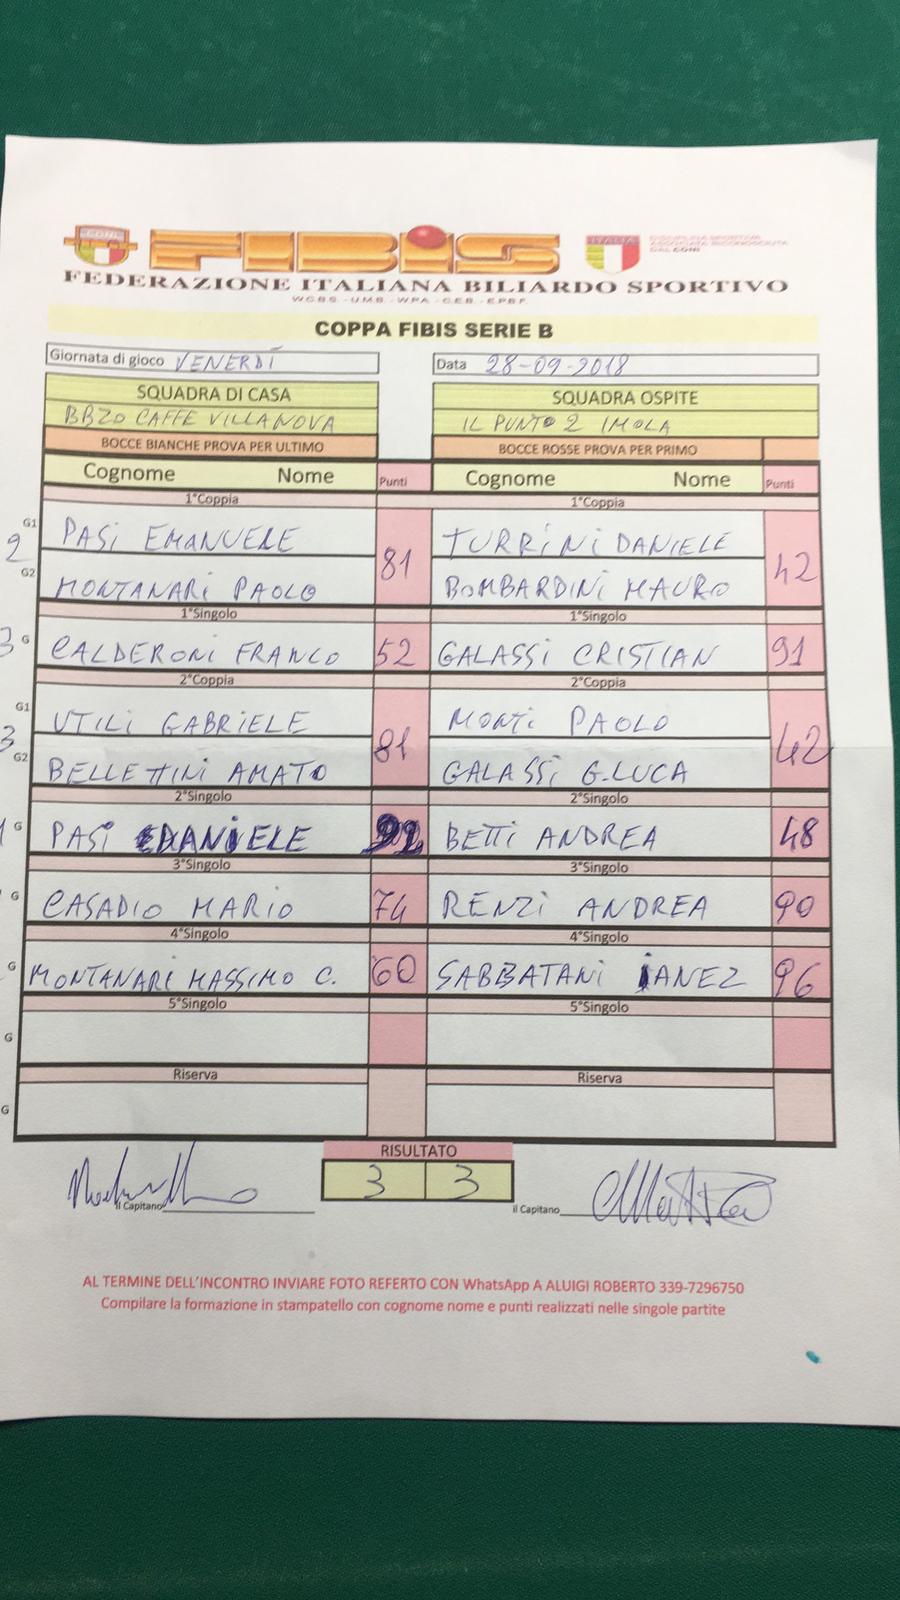 FIBIS
FEDERAZIONE ITALIANA BILIARDO SPORTIVO
W.C.B.S. - U.M.B. - W.P.A. - C.E.B. - E.P.B.F.
COPPA FIBIS SERIE B
Giornata di gioco VENERDÌ Data 28-09-2018
SQUADRA DI CASA SQUADRA OSPITE
BBZO CAFFE VILLANOVA IL PUNTO 2 IMOLA
BOCCE BIANCHE PROVA PER ULTIMO BOCCE ROSSE PROVA PER PRIMO
Cognome Nome Punti Cognome Nome Punti
1°Coppia 1°Coppia
G1 PASI EMANUELE 81 TURRINI DANIELE 42
2
G2 MONTANARI PAOLO BOMBARDINI MAURO
1°Singolo 1°Singolo
3 G CALDERONI FRANCO 52 GALASSI CRISTIAN 91
2°Coppia 2°Coppia
G1 UTILI GABRIELE 81 MONTI PAOLO 42
3
G2 BELLETTINI AMATO GALASSI G.LUCA
2°Singolo 2°Singolo
G PASI DANIELE 92 BETTI ANDREA 48
3°Singolo 3°Singolo
G CASADIO MARIO 74 RENZI ANDREA 90
4°Singolo 4°Singolo
G MONTANARI MASSIMO C. 60 SABBATANI IANEZ 96
5°Singolo 5°Singolo
G
Riserva Riserva
G
RISULTATO
3 3
il Capitano il Capitano
AL TERMINE DELL'INCONTRO INVIARE FOTO REFERTO CON WhatsApp A ALUIGI ROBERTO 339-7296750
Compilare la formazione in stampatello con cognome nome e punti realizzati nelle singole partite